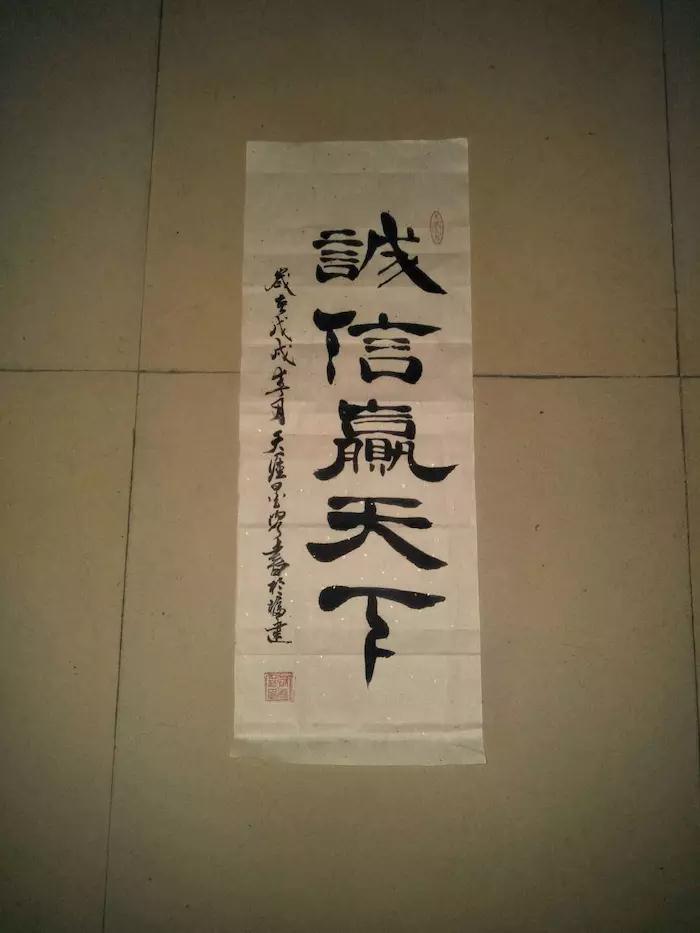 誠信贏天下
歲在戊戌年月天涯墨客書於福建